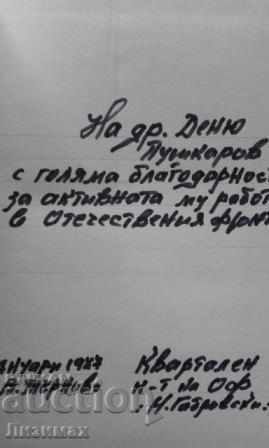 На др. Деню
Пушкаров
с голяма благодарност
за активната му работ
в Отечествения фронт
януари 1987
В. Търново
Квартален
к-т на ОФ
"Н. Габровски"
auction
Лизимах